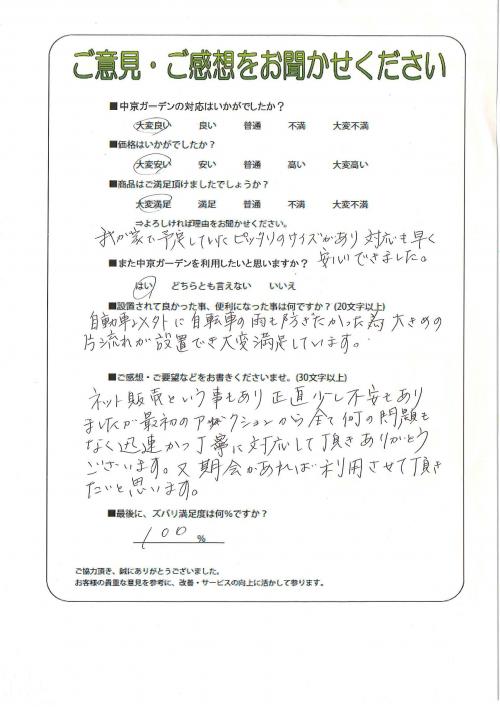 ご意見・ご感想をお聞かせください
■中京ガーデンの対応はいかがでしたか？
大変良い 良い 普通 不満 大変不満
■価格はいかがでしたか？
大変安い 安い 普通 高い 大変高い
■商品はご満足頂けましたでしょうか？
大変満足 満足 普通 不満 大変不満
⇒よろしければ理由をお聞かせください。
我が家で予定していたピッタリのサイズがあり 対応も早く
安心できました。
■また中京ガーデンを利用したいと思いますか？
はい どちらとも言えない いいえ
■設置されて良かった事、便利になった事は何ですか？(20文字以上)
自動車以外に自転車の雨も防ぎたかった為 大きめの
片流れが設置でき大変満足しています。
■ご感想・ご要望などをお書きくださいませ。(30文字以上)
ネット販売という事もあり 正直少し不安もあり
ましたが最初のアクションから全て何の問題も
なく迅速かつ丁寧に対応して頂きありがとう
ございます。又期会があれば利用させて頂き
たいと思います。
■最後に、ズバリ満足度は何%ですか？
100 %
ご協力頂き、誠にありがとうございました。
お客様の貴重な意見を参考に、改善・サービスの向上に活かして参ります。